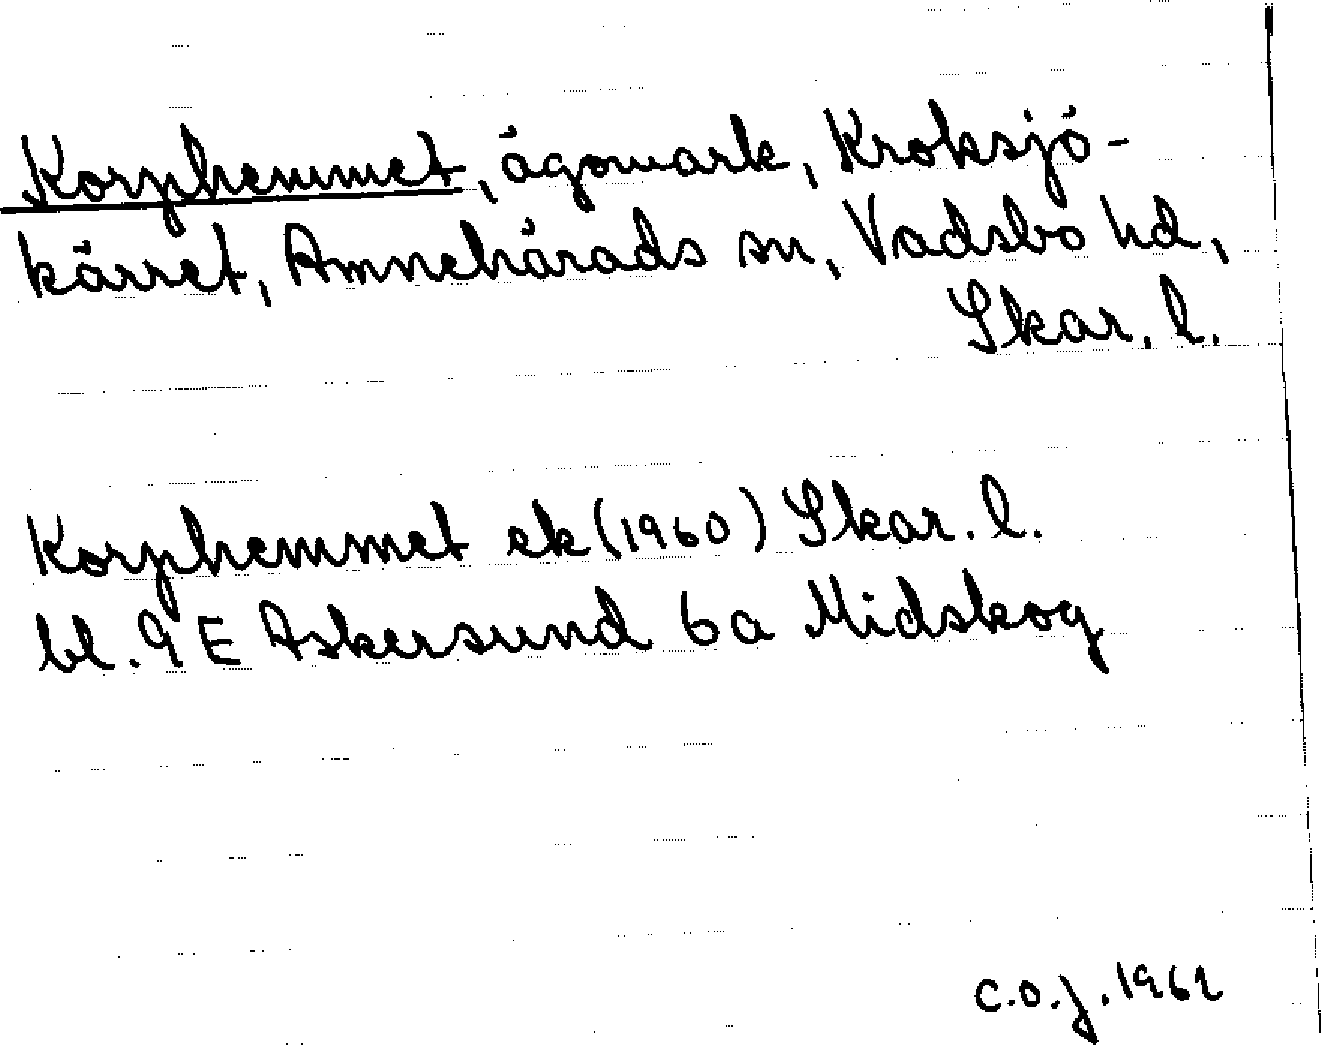 Korphemmet, ägomark, Kroksjö-
kärret, Amnehärads sn, Vadsbo hd,
Skar. l.
Korphemmet ek (1960) Skar. l.
bl. 9E Askersund 6a Midskog
C.O.J. 1962